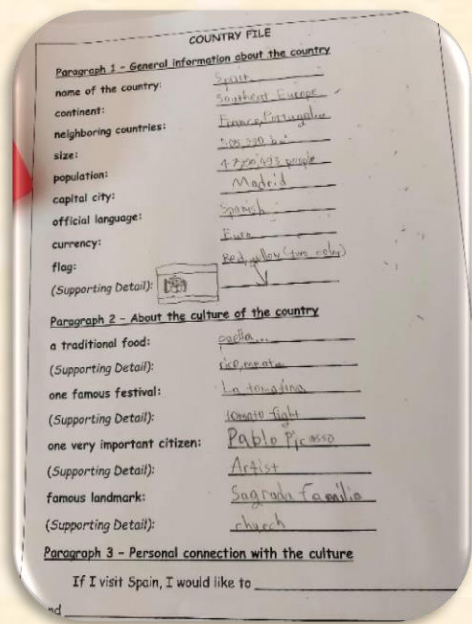 COUNTRY FILE
Paragraph 1 - General information about the country
name of the country: Spain
continent: Southern Europe
neighboring countries: France, Portugal
size: 505,990
population: people
capital city: Madrid
official language: Spanish
currency: Euro
flag: Red, yellow (two
(Supporting Detail):
Paragraph 2 - About the culture of the country
a traditional food: paella...
(Supporting Detail): rice, meat
one famous festival: La tomatina
(Supporting Detail): tomato fight
one very important citizen: Pablo Picasso
(Supporting Detail): Artist
famous landmark: Sagrada Familia
(Supporting Detail): church
Paragraph 3 - Personal connection with the culture
If I visit Spain, I would like to